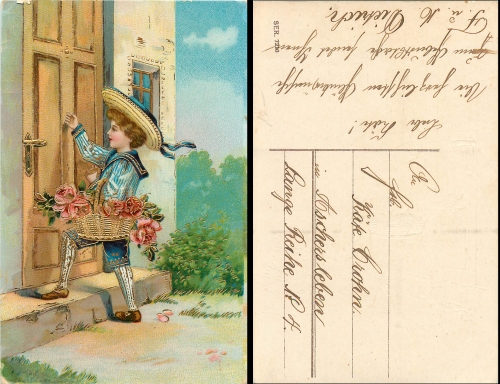 Liebe Käte!
Die herzlichsten Glückwünsche
zum Geburtstage sendet Ihnen
F. u. K. Dietrich.
SER. 7230
An
Frl.
Käte Crohn.
in Aschersleben
Lange Reihe No 4.